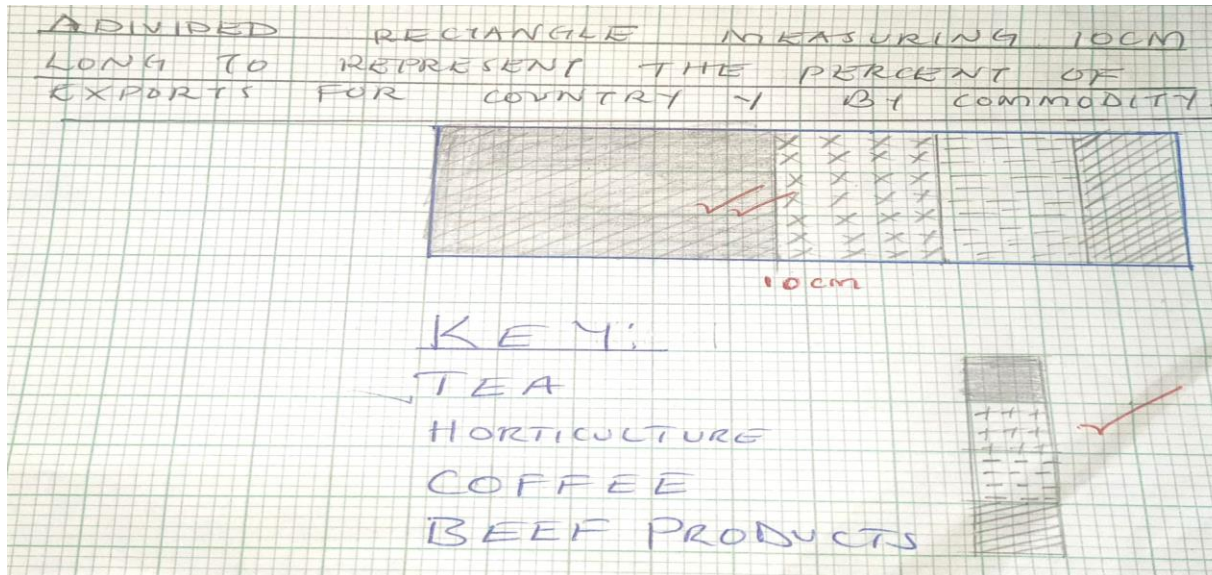 A DIVIDED RECTANGLE MEASURING 10CM
LONG TO REPRESENT THE PERCENT OF
EXPORTS FOR COUNTRY Y BY COMMODITY.
10cm
KEY:
TEA
HORTICULTURE
COFFEE
BEEF PRODUCTS